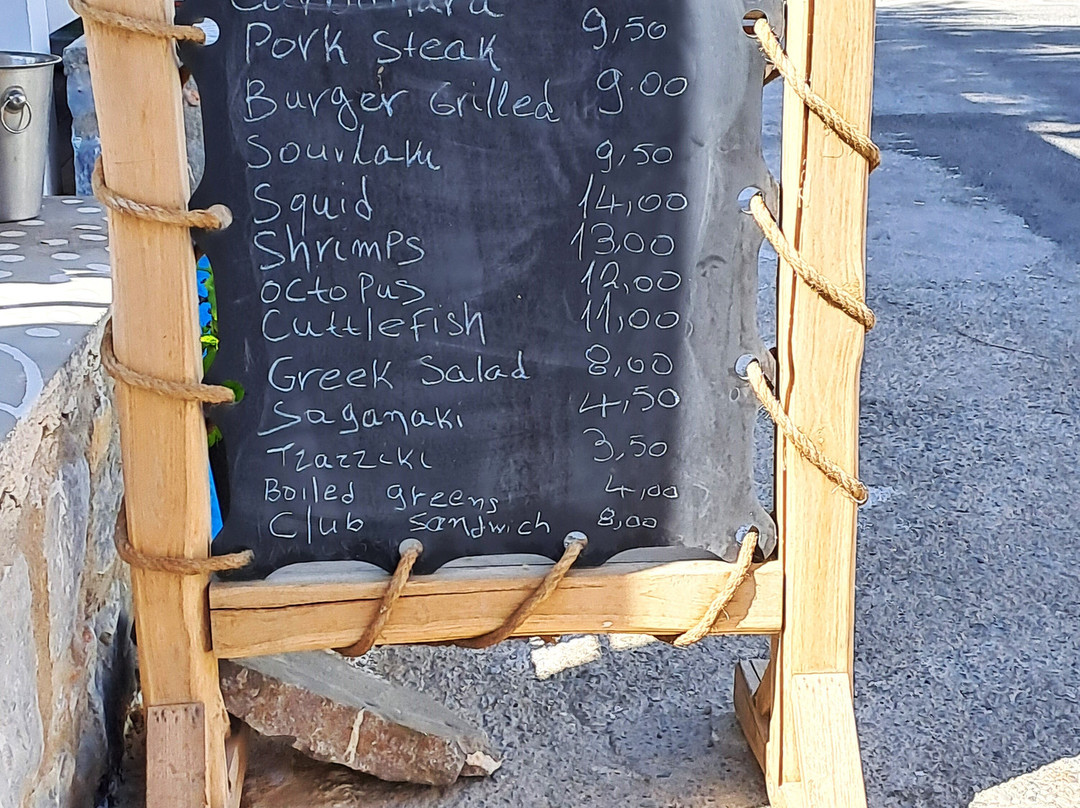 Pork Steak 9,50
Burger Grilled 9.00
Souvlaki 9,50
Squid 14,00
Shrimps 13,00
Octopus 12,00
Cuttlefish 11,00
Greek Salad 8,00
Saganaki 4,50
Tzatziki 3,50
Boiled greens 4,00
Club Sandwich 8,00